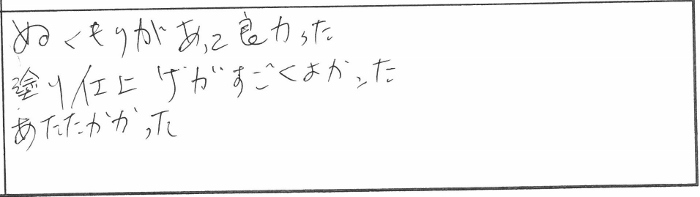 ぬくもりがあって良かった
塗り仕上げがすごくよかった
あたたかかった